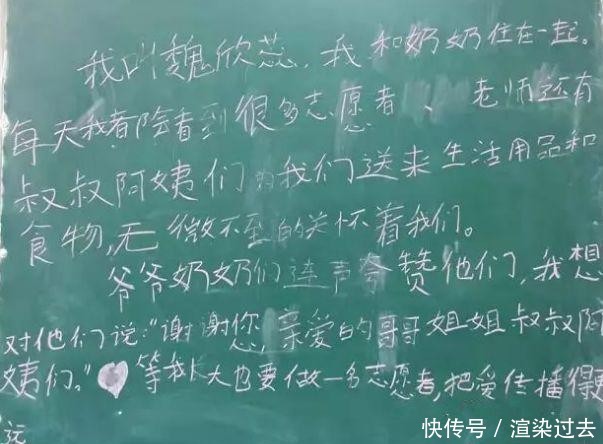 我叫魏欣蕊，我和奶奶住在一起。
每天我都会看到很多志愿者、老师还有
叔叔阿姨们为我们送来生活用品和
食物，无微不至的关怀着我们。
爷爷奶奶们连声夸赞他们，我想
对他们说：“谢谢您，亲爱的哥哥姐姐叔叔阿
姨们。”等我长大也要做一名志愿者，把爱传播得更
远
快传号／渲染过去